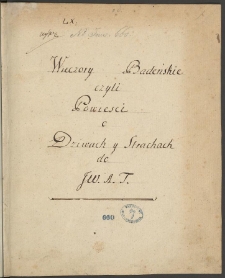 Wieczory Badeńskie
czyli
Powieści
o
Dziwach y Strachach
do
JW. A. T.
660